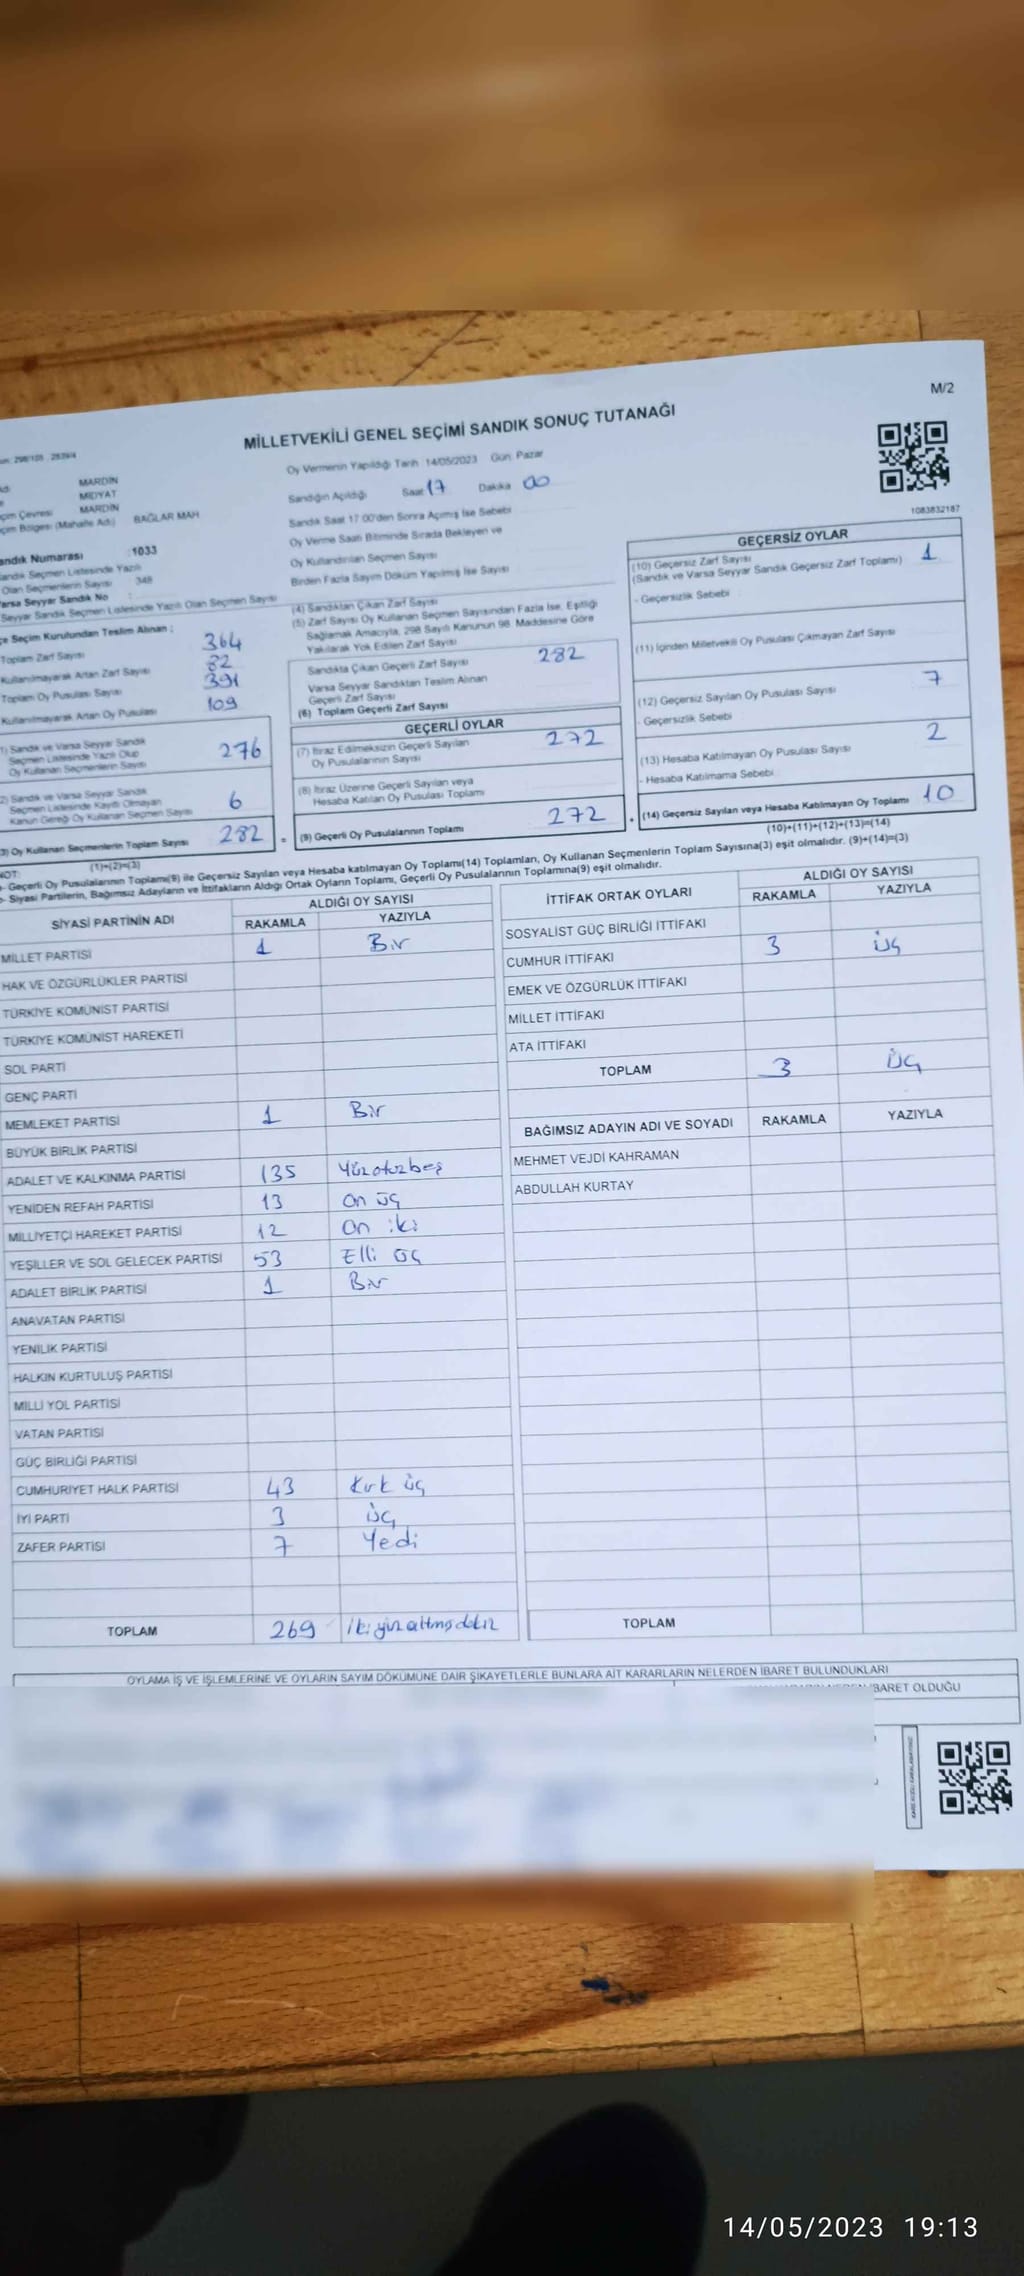 M/2
MİLLETVEKİLİ GENEL SEÇİMİ SANDIK SONUÇ TUTANAĞI
Oy Vermenin Yapıldığı Tarih 14/05/2023 Gün: Pazar
MARDİN
MİDYAT
MARDİN
Bölgesi (Mahalle Adı) BAĞLAR MAH
Sandığın Açıldığı Saat 17 Dakika 00
Sandık Saat 17:00'den Sonra Açımış İse Sebebi
Oy Verme Saati Bitiminde Sırada Bekleyen ve
Oy Kullandırılan Seçmen Sayısı
Birden Fazla Sayım Döküm Yapılmış İse Sayısı
1083832187
Numarası :1033
Sandık Seçmen Listesinde Yazılı
Olan Seçmenlerin Sayısı : 348
Varsa Seyyar Sandık No :
Seyyar Sandık Seçmen Listesinde Yazılı Olan Seçmen Sayısı
Seçim Kurulundan Teslim Alınan :
Toplam Zarf Sayısı 364
Kullanılmayarak Artan Zarf Sayısı 82
Toplam Oy Pusulası Sayısı 391
Kullanılmayarak Artan Oy Pusulası 109
Sandık ve Varsa Seyyar Sandık
Seçmen Listesinde Yazılı Olup
Oy Kullanan Seçmenlerin Sayısı 276
Sandık ve Varsa Seyyar Sandık
Seçmen Listesinde Kayıtlı Olmayan
Kanun Gereği Oy Kullanan Seçmen Sayısı 6
Oy Kullanan Seçmenlerin Toplam Sayısı 282
(1)+(2)=(3)
(4) Sandıktan Çıkan Zarf Sayısı
(5) Zarf Sayısı Oy Kullanan Seçmen Sayısından Fazla İse, Eşitliği
Sağlamak Amacıyla, 298 Sayılı Kanunun 98. Maddesine Göre
Yakılarak Yok Edilen Zarf Sayısı
Sandıkta Çıkan Geçerli Zarf Sayısı 282
Varsa Seyyar Sandıktan Teslim Alınan
Geçerli Zarf Sayısı
(6) Toplam Geçerli Zarf Sayısı
GEÇERLİ OYLAR
(7) İtiraz Edilmeksizin Geçerli Sayılan
Oy Pusulalarının Sayısı 272
(8) İtiraz Üzerine Geçerli Sayılan veya
Hesaba Katılan Oy Pusulası Toplamı
= (9) Geçerli Oy Pusulalarının Toplamı 272
GEÇERSİZ OYLAR
(10) Geçersiz Zarf Sayısı
(Sandık ve Varsa Seyyar Sandık Geçersiz Zarf Toplamı) 1
- Geçersizlik Sebebi :
(11) İçinden Milletvekili Oy Pusulası Çıkmayan Zarf Sayısı
(12) Geçersiz Sayılan Oy Pusulası Sayısı 7
- Geçersizlik Sebebi
(13) Hesaba Katılmayan Oy Pusulası Sayısı 2
- Hesaba Katılmama Sebebi :
+ (14) Geçersiz Sayılan veya Hesaba Katılmayan Oy Toplamı 10
(10)+(11)+(12)+(13)=(14)
NOT:
- Geçerli Oy Pusulalarının Toplamı(9) ile Geçersiz Sayılan veya Hesaba katılmayan Oy Toplamı(14) Toplamları, Oy Kullanan Seçmenlerin Toplam Sayısına(3) eşit olmalıdır. (9)+(14)=(3)
- Siyasi Partilerin, Bağımsız Adayların ve İttifakların Aldığı Ortak Oyların Toplamı, Geçerli Oy Pusulalarının Toplamına(9) eşit olmalıdır.
SİYASİ PARTİNİN ADI ALDIĞI OY SAYISI
RAKAMLA YAZIYLA
MİLLET PARTİSİ 1 Bir
HAK VE ÖZGÜRLÜKLER PARTİSİ
TÜRKİYE KOMÜNİST PARTİSİ
TÜRKİYE KOMÜNİST HAREKETİ
SOL PARTİ
GENÇ PARTİ
MEMLEKET PARTİSİ 1 Bir
BÜYÜK BİRLİK PARTİSİ
ADALET VE KALKINMA PARTİSİ 135 Yüzotuzbeş
YENİDEN REFAH PARTİSİ 13 On üç
MİLLİYETÇİ HAREKET PARTİSİ 12 On iki
YEŞİLLER VE SOL GELECEK PARTİSİ 53 Elli üç
ADALET BİRLİK PARTİSİ 1 Bir
ANAVATAN PARTİSİ
YENİLİK PARTİSİ
HALKIN KURTULUŞ PARTİSİ
MİLLİ YOL PARTİSİ
VATAN PARTİSİ
GÜÇ BİRLİĞİ PARTİSİ
CUMHURİYET HALK PARTİSİ 43 Kırk üç
İYİ PARTİ 3 üç
ZAFER PARTİSİ 7 Yedi
TOPLAM 269
İTTİFAK ORTAK OYLARI ALDIĞI OY SAYISI
RAKAMLA YAZIYLA
SOSYALİST GÜÇ BİRLİĞİ İTTİFAKI
CUMHUR İTTİFAKI 3 üç
EMEK VE ÖZGÜRLÜK İTTİFAKI
MİLLET İTTİFAKI
ATA İTTİFAKI
TOPLAM 3 üç
BAĞIMSIZ ADAYIN ADI VE SOYADI RAKAMLA YAZIYLA
MEHMET VEJDİ KAHRAMAN
ABDULLAH KURTAY
TOPLAM
OYLAMA İŞ VE İŞLEMLERİNE VE OYLARIN SAYIM DÖKÜMÜNE DAİR ŞİKAYETLERLE BUNLARA AİT KARARLARIN NELERDEN İBARET BULUNDUKLARI
BARET OLDUĞU
14/05/2023 19:13